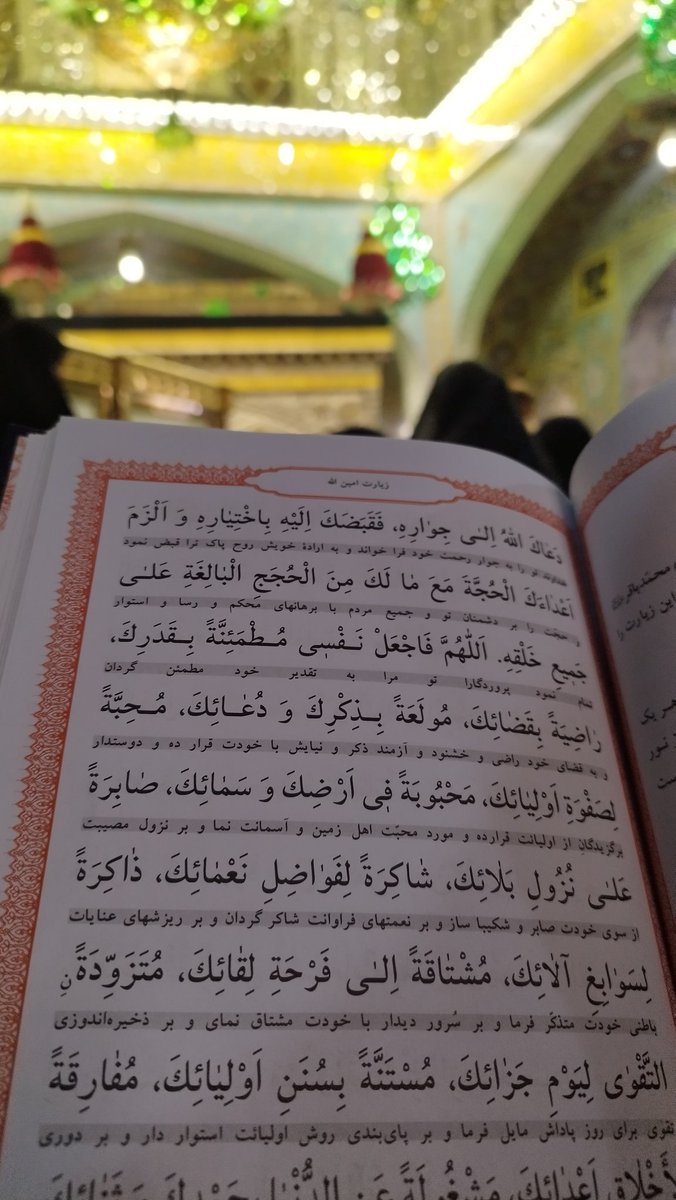 زیارت امین الله
دَعٰاكَ اللّٰهُ اِلـٰى جِوٰارِهِ، فَقَبَضَكَ اِلَيْهِ بِاخْتِيٰارِهِ وَ اَلْزَمَ
خداوند تو را به جوار رحمت خود فرا خواند و به ارادهٔ خویش روح پاک ترا قبض نمود
اَعْدٰاءَكَ الْحُجَّةَ مَعَ مٰا لَكَ مِنَ الْحُجَجِ الْبٰالِغَةِ عَلـٰى
و حجّت را بر دشمنان تو و جمیع مردم با برهانهای محکم و رسا و استوار
جَمِيعِ خَلْقِهِ. اَللّٰهُمَّ فَاجْعَلْ نَـفْسِى مُـطْمَئِنَّةً بِـقَدَرِكَ،
تمام نمود پروردگارا تو مرا به تقدیر خود مطمئن گردان
رٰاضِيَةً بِقَضٰائِكَ، مُولَعَةً بِـذِكْرِكَ وَ دُعٰـائِكَ، مُـحِبَّةً
و به قضای خود راضی و خشنود و آزمند ذکر و نیایش با خودت قرار ده و دوستدار
لِصَفْوَةِ اَوْلِيٰائِكَ، مَحْبُوبَةً فِى اَرْضِكَ وَ سَمٰائِكَ، صٰابِرَةً
برگزیدگان از اولیائت قرارده و مورد محبّت اهل زمین و آسمانت نما و بر نزول مصیبت
عَلـٰى نُزُولِ بَلٰائِكَ، شٰاكِرَةً لِفَوٰاضِلِ نَعْمٰائِكَ، ذٰاكِرَةً
از سوی خودت صابر و شکیبا ساز و بر نعمتهای فراوانت شاکر گردان و بر ریزشهای عنایات
لِسَوٰابِغِ آلٰائِكَ، مُشْتٰاقَةً اِلـٰى فَرْحَةِ لِقٰائِكَ، مُتَزَوِّدَةً نِ
باطنی خودت متذکّر فرما و بر سُرور دیدار با خودت مشتاق نمای و بر ذخیره‌اندوزی
التَّقْوٰى لِيَوْمِ جَزٰائِكَ، مُسْتَنَّةً بِسُنَنِ اَوْلِيٰائِكَ، مُفٰارِقَةً
تقوی برای روز پاداش مایل فرما و بر پای‌بندی روش اولیائت استوار دار و بر دوری
لِاَخْلٰاقِ اَعْدٰائِكَ، مَشْغُولَةً عَنِ الدُّنْيٰا بِحَمْدِكَ وَ ثَنٰائِكَ
محمّدباقر
این زیارت را
هر یک